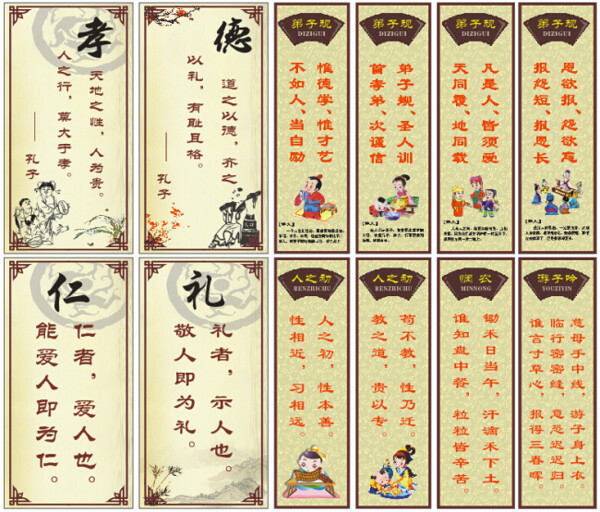 孝
天地之性，人为贵。
人之行，莫大于孝。
——孔子
德
道之以德，齐之
以礼，有耻且格。
——孔子
弟子规
DIZIGUI
惟德学、惟才艺
不如人、当自励
弟子规
DIZIGUI
弟子规、圣人训
首孝弟、次谨信
弟子规
DIZIGUI
凡是人、皆须爱
天同覆、地同载
弟子规
DIZIGUI
恩欲报、怨欲忘
报怨短、报恩长
仁
仁者，爱人也。
能爱人即为仁。
礼
礼者，示人也。
敬人即为礼。
人之初
RENZHICHU
人之初，性本善。
性相近，习相远。
人之初
RENZHICHU
苟不教，性乃迁。
教之道，贵以专。
悯农
MINNONG
锄禾日当午，汗滴禾下土。
谁知盘中餐，粒粒皆辛苦。
游子吟
YOUZIYIN
慈母手中线，游子身上衣。
临行密密缝，意恐迟迟归。
谁言寸草心，报得三春晖。